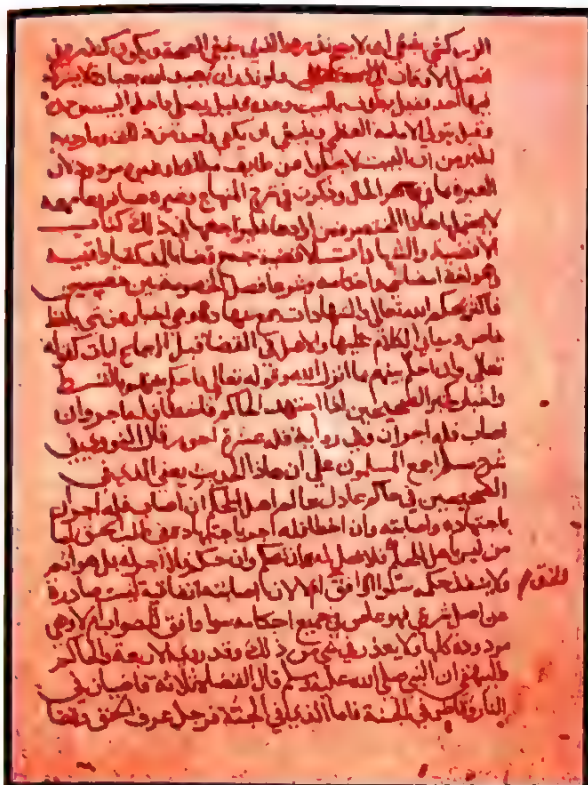 الزركشي ينبغي ان لا يجوز نذره هذا الذي ينبغي الصحة ويكون كنذره في
فصل الاوقات
فيها احد فقيل يطوف بالبيت وحده وقيل يصلي داخل البيت وحده
وقيل يتولى الامامة العظمى وينبغي ان يكفي احدهما
من ان البيت لا يخلو عن طايف من ملك او غيره مردود لان
العبرة بما في ظاهر الحال وذكرت في شرح المنهاج وغيره هنا
لا يحتملها هذا المختصر فمن ارادها فليراجعها في ذلك كتاب
الاقضية والشهادات الاقضية جمع قضا بالمد كقبا واقبية
وهو لغة امضا الشي واحكامه وشرعا فصل الخصومة بين خصمين
فاكثر بحكم الله تعالى والشهادات جمع شهادة وهي اخبار عن شي بلفظ
خاص وسياتي الكلام عليها والاصل في القضا قبل الاجماع ايات كقوله
تعالى وان احكم بينهم بما انزل الله وقوله تعالى فاحكم بينهم بالقسط
واخبار كخبر الصحيحين اذا اجتهد الحاكم فاخطا فله اجر وان
اصاب فله اجران وفي رواية فله عشرة اجور قال النووي في
شرح مسلم اجمع المسلمون على ان هذا الحديث يعني الذي في
الصحيحين في حاكم عادل عالم اهل للحكم ان اصاب فله اجران
باجتهاده واصابته وان اخطا فله اجر باجتهاده في طلب الحق اما
من ليس باهل للحكم فلا يحل له ان يحكم وان حكم فلا اجر له بل هو اثم
ولا ينفذ حكمه سوا وافق الحق ام لا لان اصابته اتفاقية ليست صادرة
عن اصل شرعي فهو عاص في جميع احكامه سوا وافق الصواب ام لا وهي
مردودة كلها ولا يعذر في شي من ذلك وقد روى الاربعة والحاكم
والبيهقي ان النبي صلى الله عليه وسلم قال القضاة ثلاثة قاضيان في
النار وقاض في الجنة فاما الذي في الجنة فرجل عرف الحق وقضا